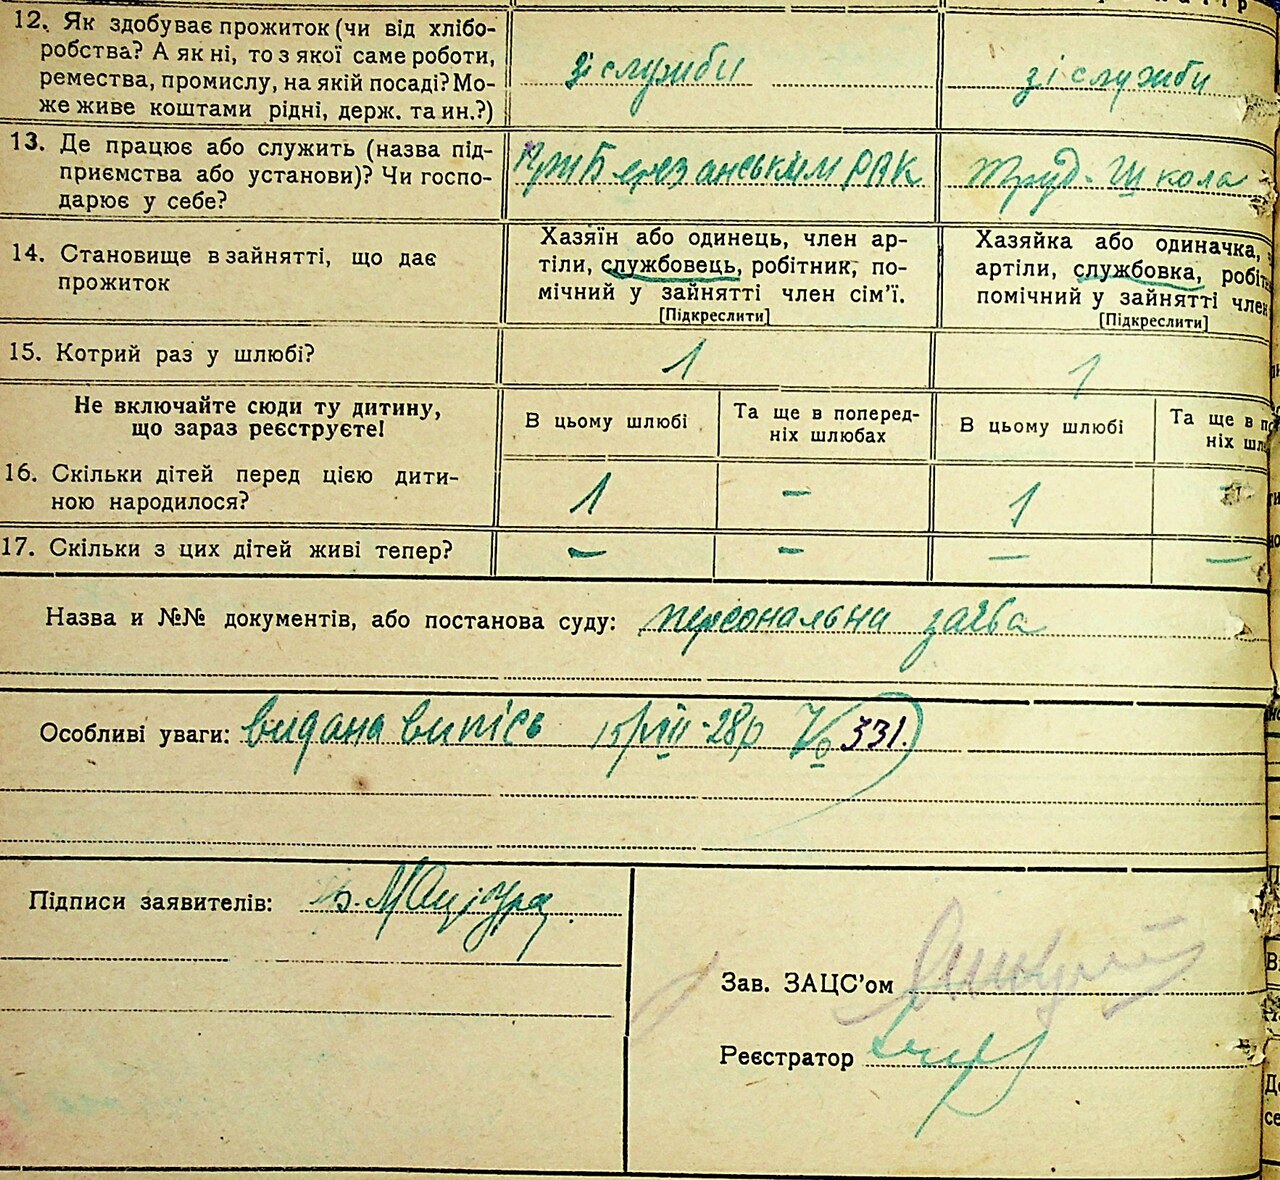 12. Як здобуває прожиток (чи від хлібо-
робства? А як ні, то з якої саме роботи,
ремества, промислу, на якій посаді? Мо-
же живе коштами рідні, держ. та ин.?)
зі служби
зі служби
13. Де працює або служить (назва під-
приємства або установи)? Чи госпо-
дарює у себе?
Березанським РВК
Труд. Школа
14. Становище в зайнятті, що дає
прожиток
Хазяїн або одинець, член ар-
тіли, службовець, робітник, по-
мічний у зайнятті член сім'ї.
[Підкреслити]
Хазяйка або одиначка,
артіли, службовка, робіт
помічний у зайнятті член
[Підкреслити]
15. Котрий раз у шлюбі?
1
1
Не включайте сюди ту дитину,
що зараз реєструєте!
В цьому шлюбі
Та ще в поперед-
ніх шлюбах
В цьому шлюбі
Та ще в по
ніх шл
16. Скільки дітей перед цією дити-
ною народилося?
1 – 1 –
17. Скільки з цих дітей живі тепер?
– – – –
Назва и №№ документів, або постанова суду: персональна заява
Особливі уваги: видана випісь 15/VIII-28р № 331.
Підписи заявителів:
Зав. ЗАЦС'ом
Реєстратор